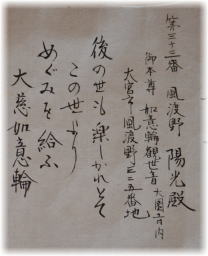 第三十三番 風渡野 陽光殿
御本尊 如意輪観世音 大圓寺内
大宮市風渡野三二五番地
後の世も楽しかれとて
この世より
めぐみを給ふ
大慈如意輪